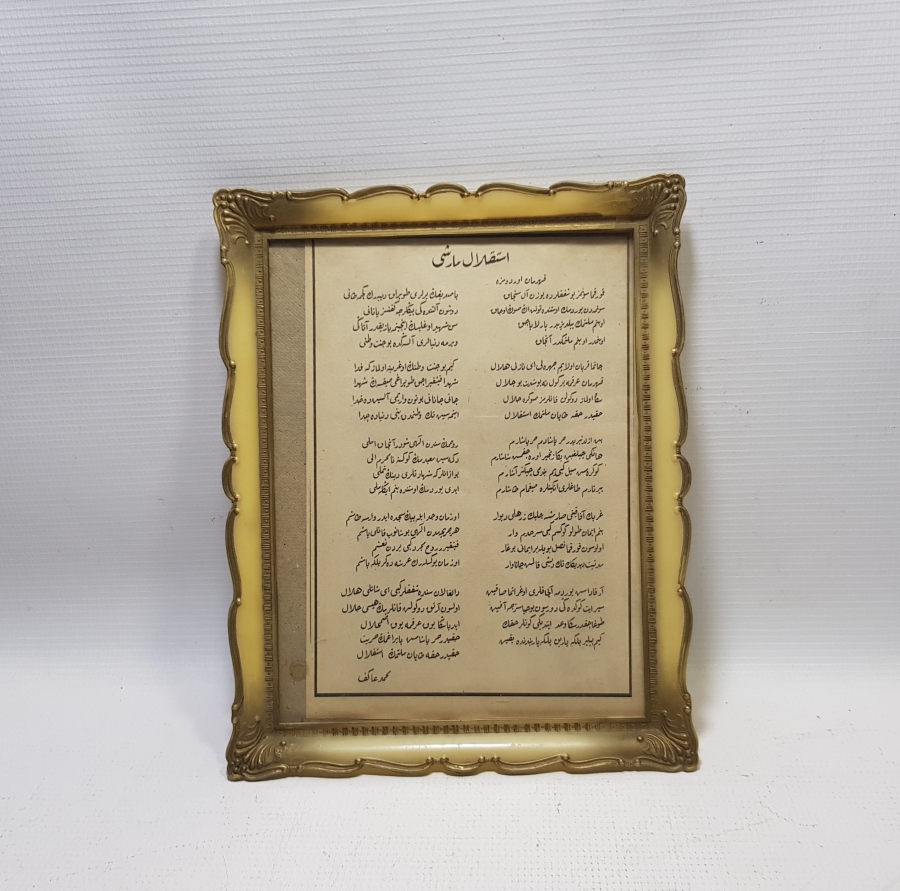 استقلال مارشی
قهرمان اوردومزه
قورقما سونمز بو شفقلرده یوزن آل سنجاق
سونمدن یوردمك اوستنده توتن اڭ صوك اوجاق
او بنم ملتمك ییلدیزیدر پارلایاجق
او بنمدر او بنم ملتمكدر آنجاق
چاتما قربان اولایم چهره‌كی ای نازلی هلال
قهرمان عرقمه بر كول نه بو شدت بو جلال
سكا اولماز دوكولن قانلرمز صوكره حلال
حقیدر حقه طاپان ملتمك استقلال
بن ازلدنبریدر حر یاشادم حر یاشارم
هانكی چیلغین بكا زنجیر اوره‌جقمش شاشارم
كوكره‌مش سیل كبی‌یم بندمی چیكنر آشارم
ییرتارم طاغلری انكینلره صیغمام طاشارم
غربك آفاقنی صارمشسه چلیك زرهلی دیوار
بنم ایمان طولو كوكسم كبی سرحدم وار
اولوسون قورقما ناصل بویله بر ایمانی بوغار
مدنیت دیدیكك تك دیشی قالمش جاناوار
آرقاداش یوردمه آلچاقلری اوغراتما صاقین
سپر ایت كوكده‌كی دورسون بو حیاسزجه آقین
طوغاجقدر سكا وعد ایتدیكی كونلر حقك
كیم بیلیر بلكه یارین بلكه یاریندنده یقین
باصدیغك یرلری طوپراق دییه‌رك كچمه طانی
دوشون آلتنده‌كی بیكلرجه كفنسز یاتانی
سن شهید اوغلیسك اینجیتمه یازیقدر آتاكی
ویرمه دنیالری آلسه‌كده بو جنت وطنی
كیم بو جنت وطنك اوغرینه اولمازكه فدا
شهدا فیشقیراجق طوپراغی صیقسه‌ك شهدا
جانی جانانی بوتون واریمی آلسین‌ده خدا
ایتمه‌سین تك وطنمدن بنی دنیاده جدا
روحمك سندن الهی شودر آنجاق املی
دكمه‌سین معبدمك كوكسنه نامحرم الی
بو اذانلركه شهادتلری دینك تملی
ابدی یوردمك اوستنده بنم ایكله‌ملی
او زمان وجد ایله بیك سجده ایدر وارسه طاشم
هر جریحه‌مدن الهی بوشانوب قانلی یاشم
فیشقیریر روح مجرد كبی یردن نعشم
او زمان یوكسله‌رك عرشه دكر بلكه باشم
دالغالان سنده شفقلر كبی ای شانلی هلال
اولسون آرتق دوكولن قانلرمك هپسی حلال
ابدیا سكا یوق عرقمه یوق اضمحلال
حقیدر حر یاشامش بایراغمك حریت
حقیدر حقه طاپان ملتمك استقلال
محمد عاكف